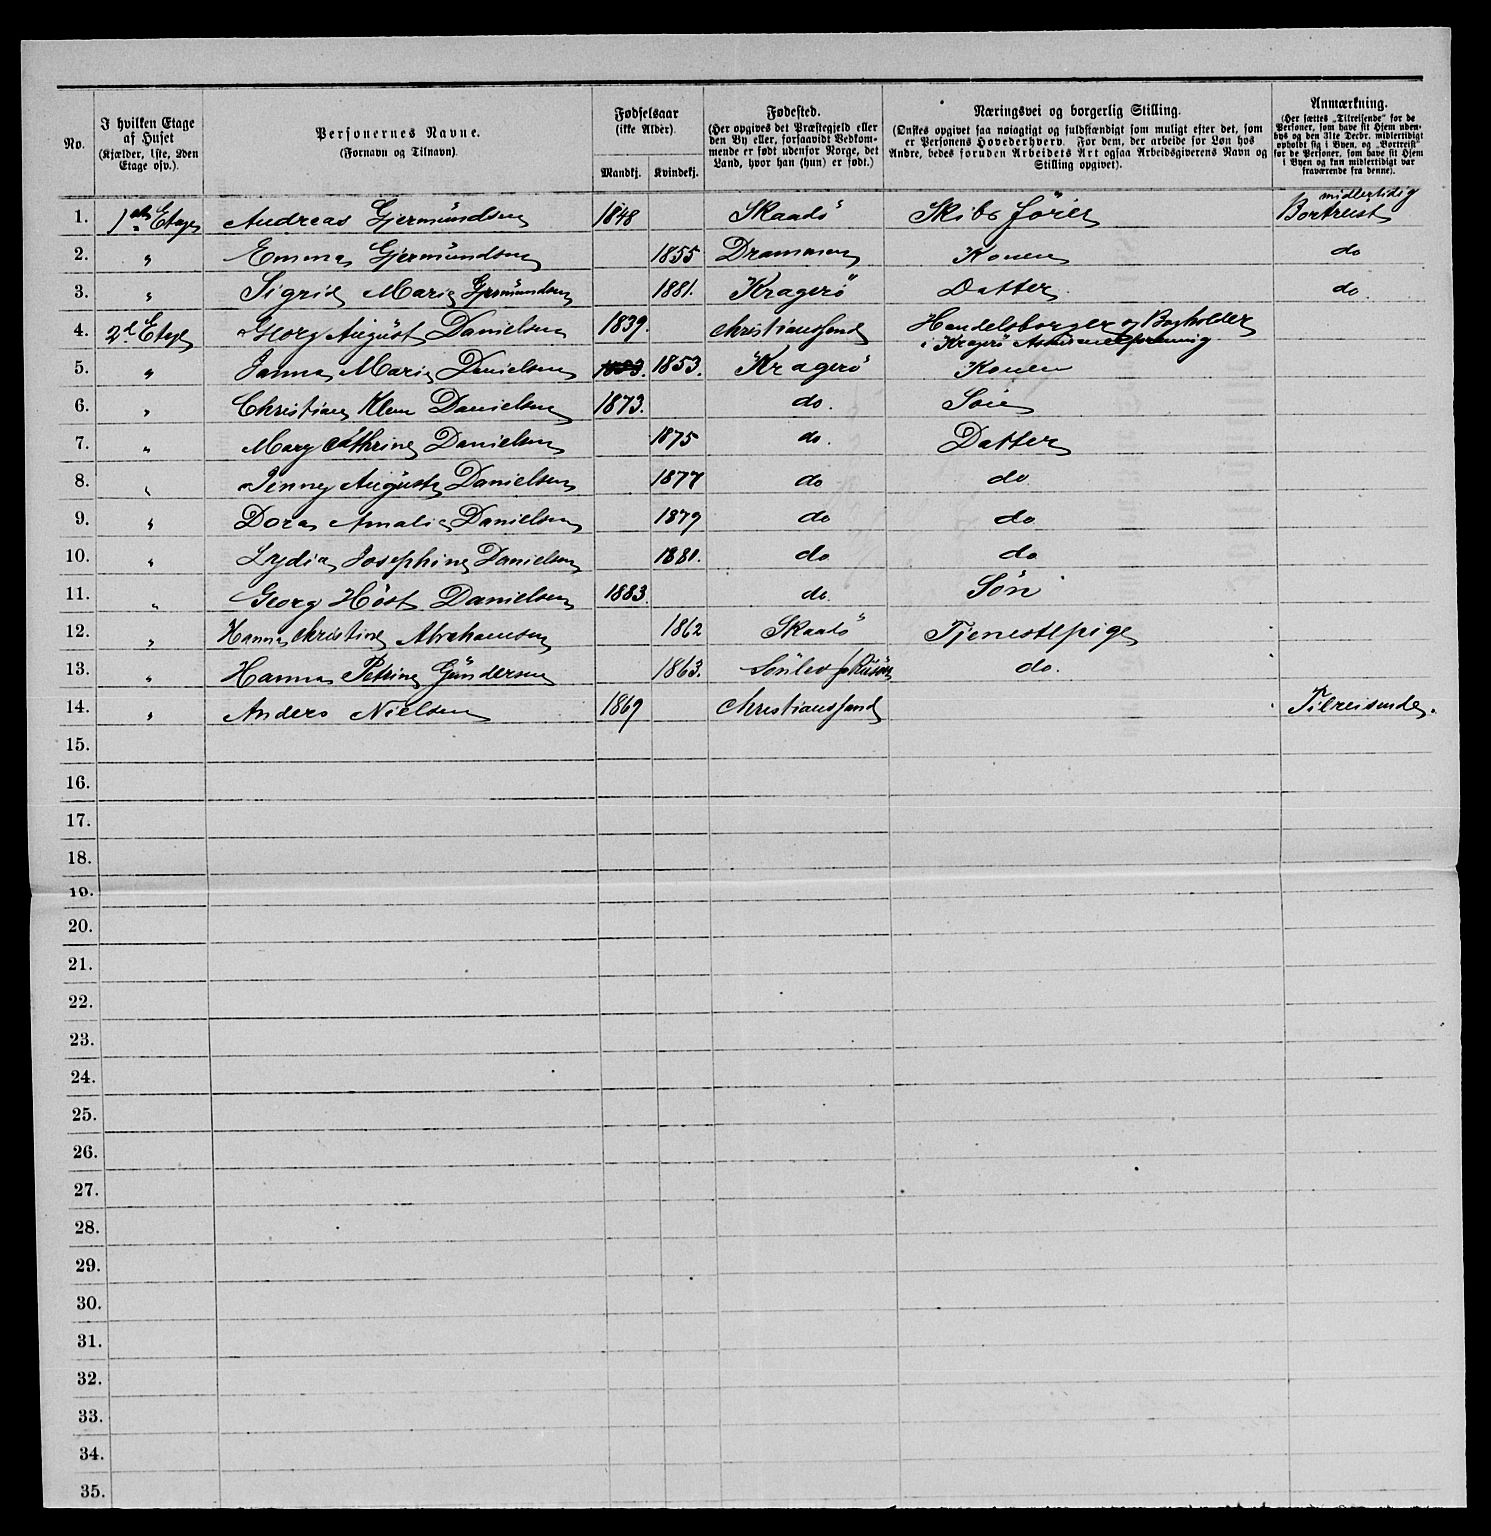 No. | I hvilken Etage af Huset (Kjælder, 1ste, 2den Etage osv.). | Personernes Navne. (Fornavn og Tilnavn). | Fødselsaar (ikke Alder). Mandkj. | Kvindekj. | Fødested. (Her opgives det Præstegjeld eller den By eller, forsaavidt Vedkommende er født udenfor Norge, det Land, hvor han (hun) er født.) | Næringsvei og borgerlig Stilling. (Ønskes opgivet saa nøiagtigt og fuldstændigt som muligt efter det, som er Personens Hovederhverv. For dem, der arbeide for Løn hos Andre, bedes foruden Arbeidets Art ogsaa Arbeidsgiverens Navn og Stilling opgivet). | Anmærkning. (Her sættes „Tilreisende“ for de Personer, som have sit Hjem udenbys og den 31te Decbr. midlertidigt opholdt sig i Byen, og „Bortreist“ for de Personer, som have sit Hjem i Byen og kun midlertidigt var fraværende fra denne).
1. | 1ste Etage | Andreas Gjermundsen | 1848 | | Skaadö | Skibsförer | midlertidig Bortreist
2. | „ | Emma Gjermundsen | | 1855 | Drammen | Konen | do
3. | „ | Sigrid Marie Gjermundsen | | 1881. | Kragerö | Datter | do
4. | 2d Etage | Georg August Danielsen | 1839. | | Christianssand | Handelsborger og Bogholder
i Kragerö
5. | „ | Janna Marie Danielsen | 1853. | 1853. | Kragerö | Konen
6. | „ | Christian Klem Danielsen | 1873. | | do. | Sön
7. | „ | Mary Cathrine Danielsen | | 1875 | do. | Datter
8. | „ | Jenny Augusta Danielsen | | 1877 | do | do
9. | „ | Dora Amalie Danielsen | | 1879 | do | do
10. | „ | Lydia Josephine Danielsen | | 1881. | do | do
11. | „ | Georg Höst Danielsen | 1883. | | do. | Sön
12. | „ | Hanna Christine Abrahamsen | | 1862 | Skaadö | Tjenestepige
13. | „ | Hanna Petrine Gundersen | | 1863. | Risör | do.
14. | „ | Anders Nielsen | 1869 | | Christianssand | | Tilreisende.
15.
16.
17.
18.
19.
20.
21.
22.
23.
24.
25.
26.
27.
28.
29.
30.
31.
32.
33.
34.
35.